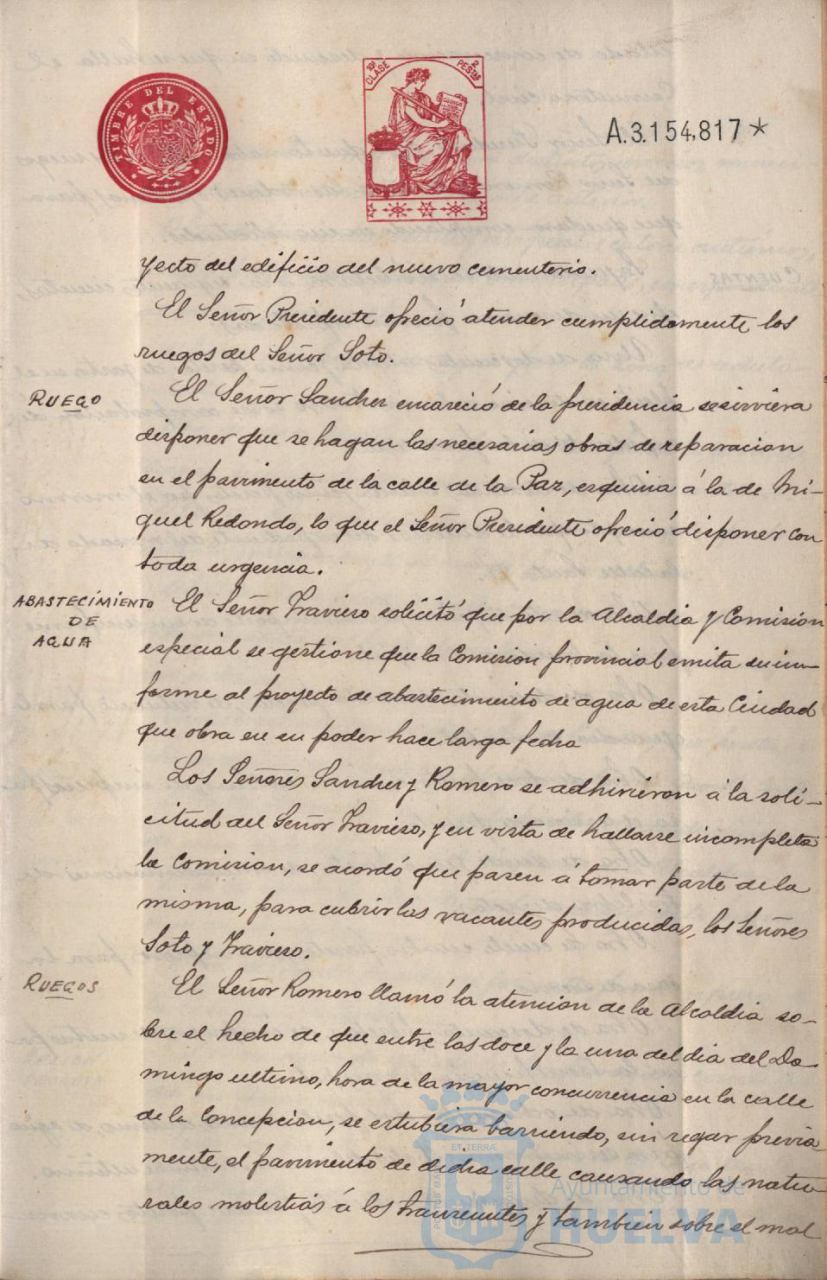 TIMBRE DEL ESTADO
10ª CLASE
2 PESTAS
A.3.154,817*
yecto del edificio del nuevo cementerio.
El Señor Presidente ofreció atender cumplidamente los
ruegos del Señor Soto.
RUEGO
El Señor Sanchez encareció de la presidencia se sirviera
disponer que se hagan las necesarias obras de reparacion
en el pavimento de la calle de la Paz, esquina á la de Mi-
guel Redondo, lo que el Señor Presidente ofreció disponer con
toda urgencia.
ABASTECIMIENTO
DE
AGUA
El Señor Travieso solicitó que por la Alcaldia y Comision
especial se gestione que la Comision provincial emita su in-
forme al proyecto de abastecimiento de agua de esta Ciudad
que obra en su poder hace larga fecha
Los Señores Sanchez y Romero se adhirieron á la soli-
citud del Señor Travieso, y en vista de hallarse incompleta
la comision, se acordó que pasen á tomar parte de la
misma, para cubrir las vacantes producidas, los Señores
Soto y Travieso.
RUEGOS
El Señor Romero llamó la atencion de la Alcaldia so-
bre el hecho de que entre las doce y la una del dia del Do-
mingo ultimo, hora de la mayor concurrencia en la calle
de la Concepcion, se estubiera barriendo, sin regar previa-
mente, el pavimento de dicha calle causando las natu-
rales molestias á los transeuntes y tambien sobre el mal
Ayuntamiento de
HUELVA